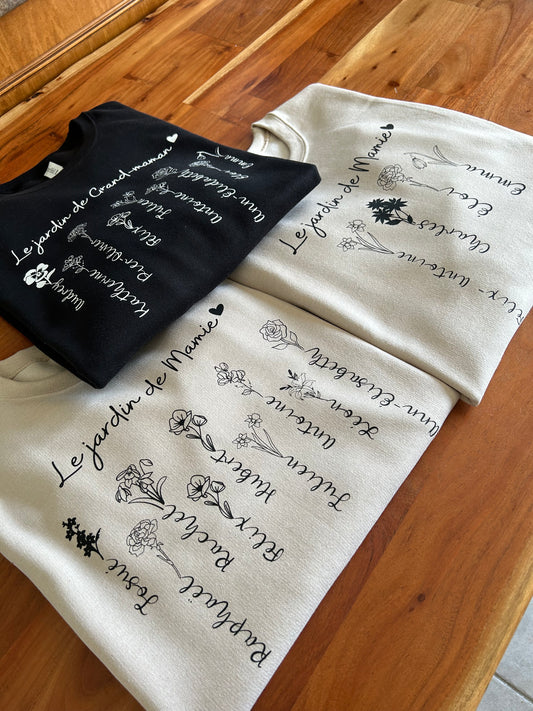 Le jardin de Grand-maman
Audrey
Katherine
Félix
Julien
Antoine
Ann-Élisabeth
Emma
Le jardin de Mamie
Félix-Antoine
Charles
Éloi
Emma
Le jardin de Mamie
Josué
Raphaël
Rachel
Félix
Hubert
Julien
Antoine
Léon
Ann-Élisabeth